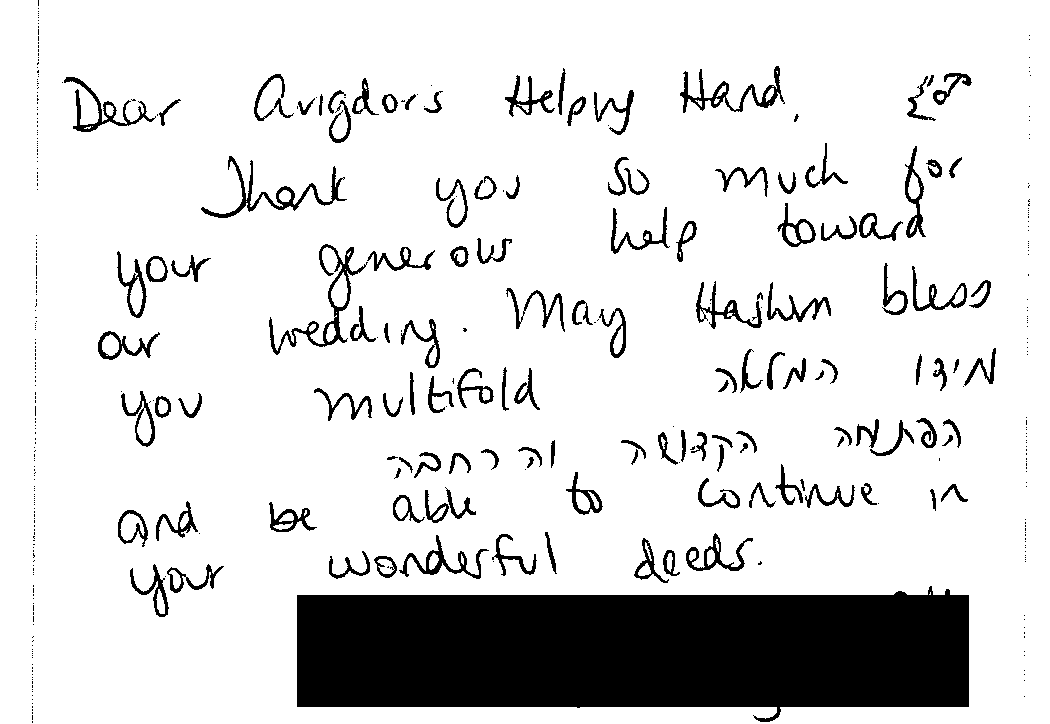 Dear Avigdors Helping Hand, בס"ד
Thank you so much for
your generous help toward
our wedding. May Hashem bless
you multifold מידו המלאה
הפתוחה הקדושה והרחבה
and be able to continue in
your wonderful deeds.